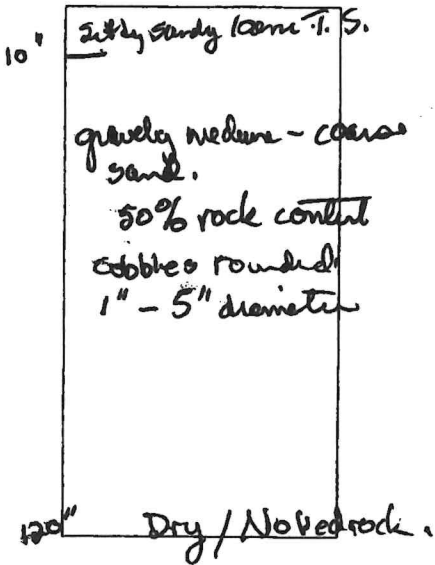 silty sandy loam T.S.
10"
gravely medium - coarse
sand.
50% rock content
cobbles rounded
1" - 5" diameter
120" Dry / No bedrock.